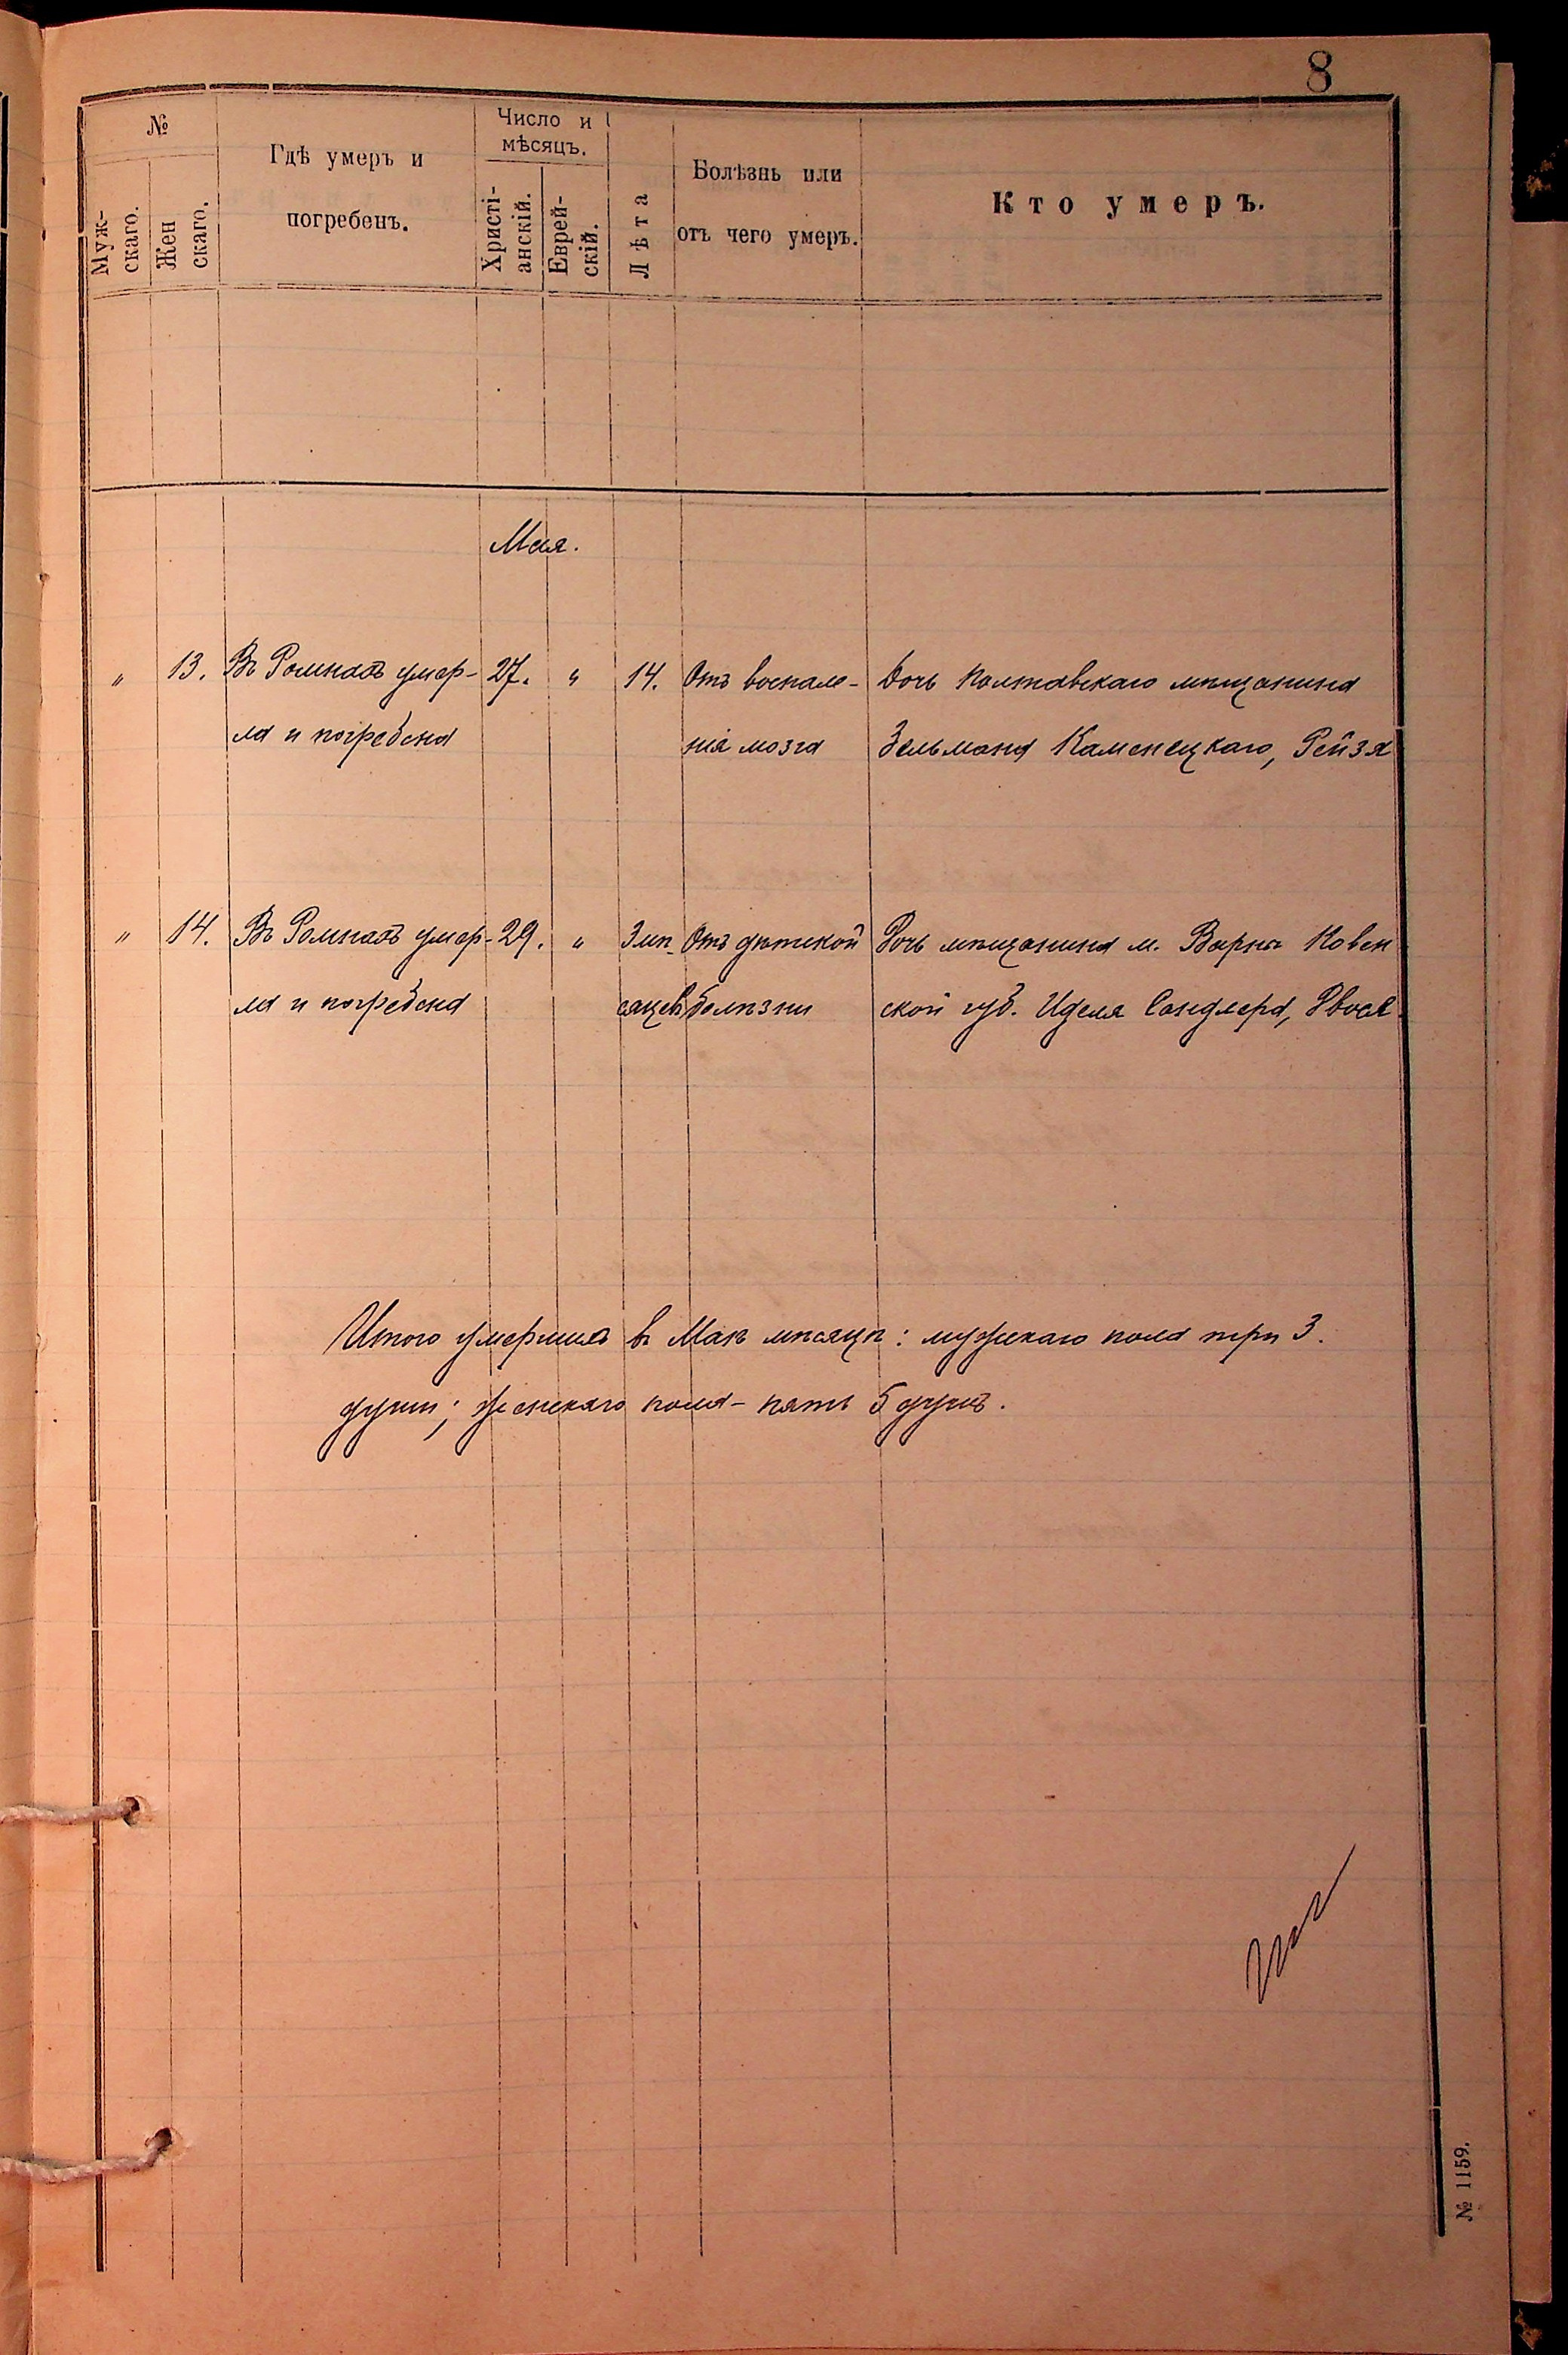 8
№
Муж-
скаго.
Жен
скаго.
Гдѣ умеръ и
погребенъ.
Число и
мѣсяцъ.
Христі-
анскій.
Еврей-
скій.
Лѣта
Болѣзнь или
отъ чего умеръ.
Кто умеръ.
Мая.
" 13. Въ Ромнахъ умер- 27. " 14. Отъ воспале- Дочь Полтавскаго мѣщанина
ла и погребена нія мозга Зельмана Каменецкаго, Рейзя
" 14. Въ Ромнахъ умер- 29. " 3 мѣ- Отъ дѣтской Дочь мѣщанина м. Ворны Ковен
ла и погребена сяцевъ болѣзни ской губ. Иделя Сандлера, Двося
Итого умершихъ въ Маѣ мѣсяцѣ: мужскаго пола три 3.
души; женскаго пола - пять 5 душъ.
№ 1159.